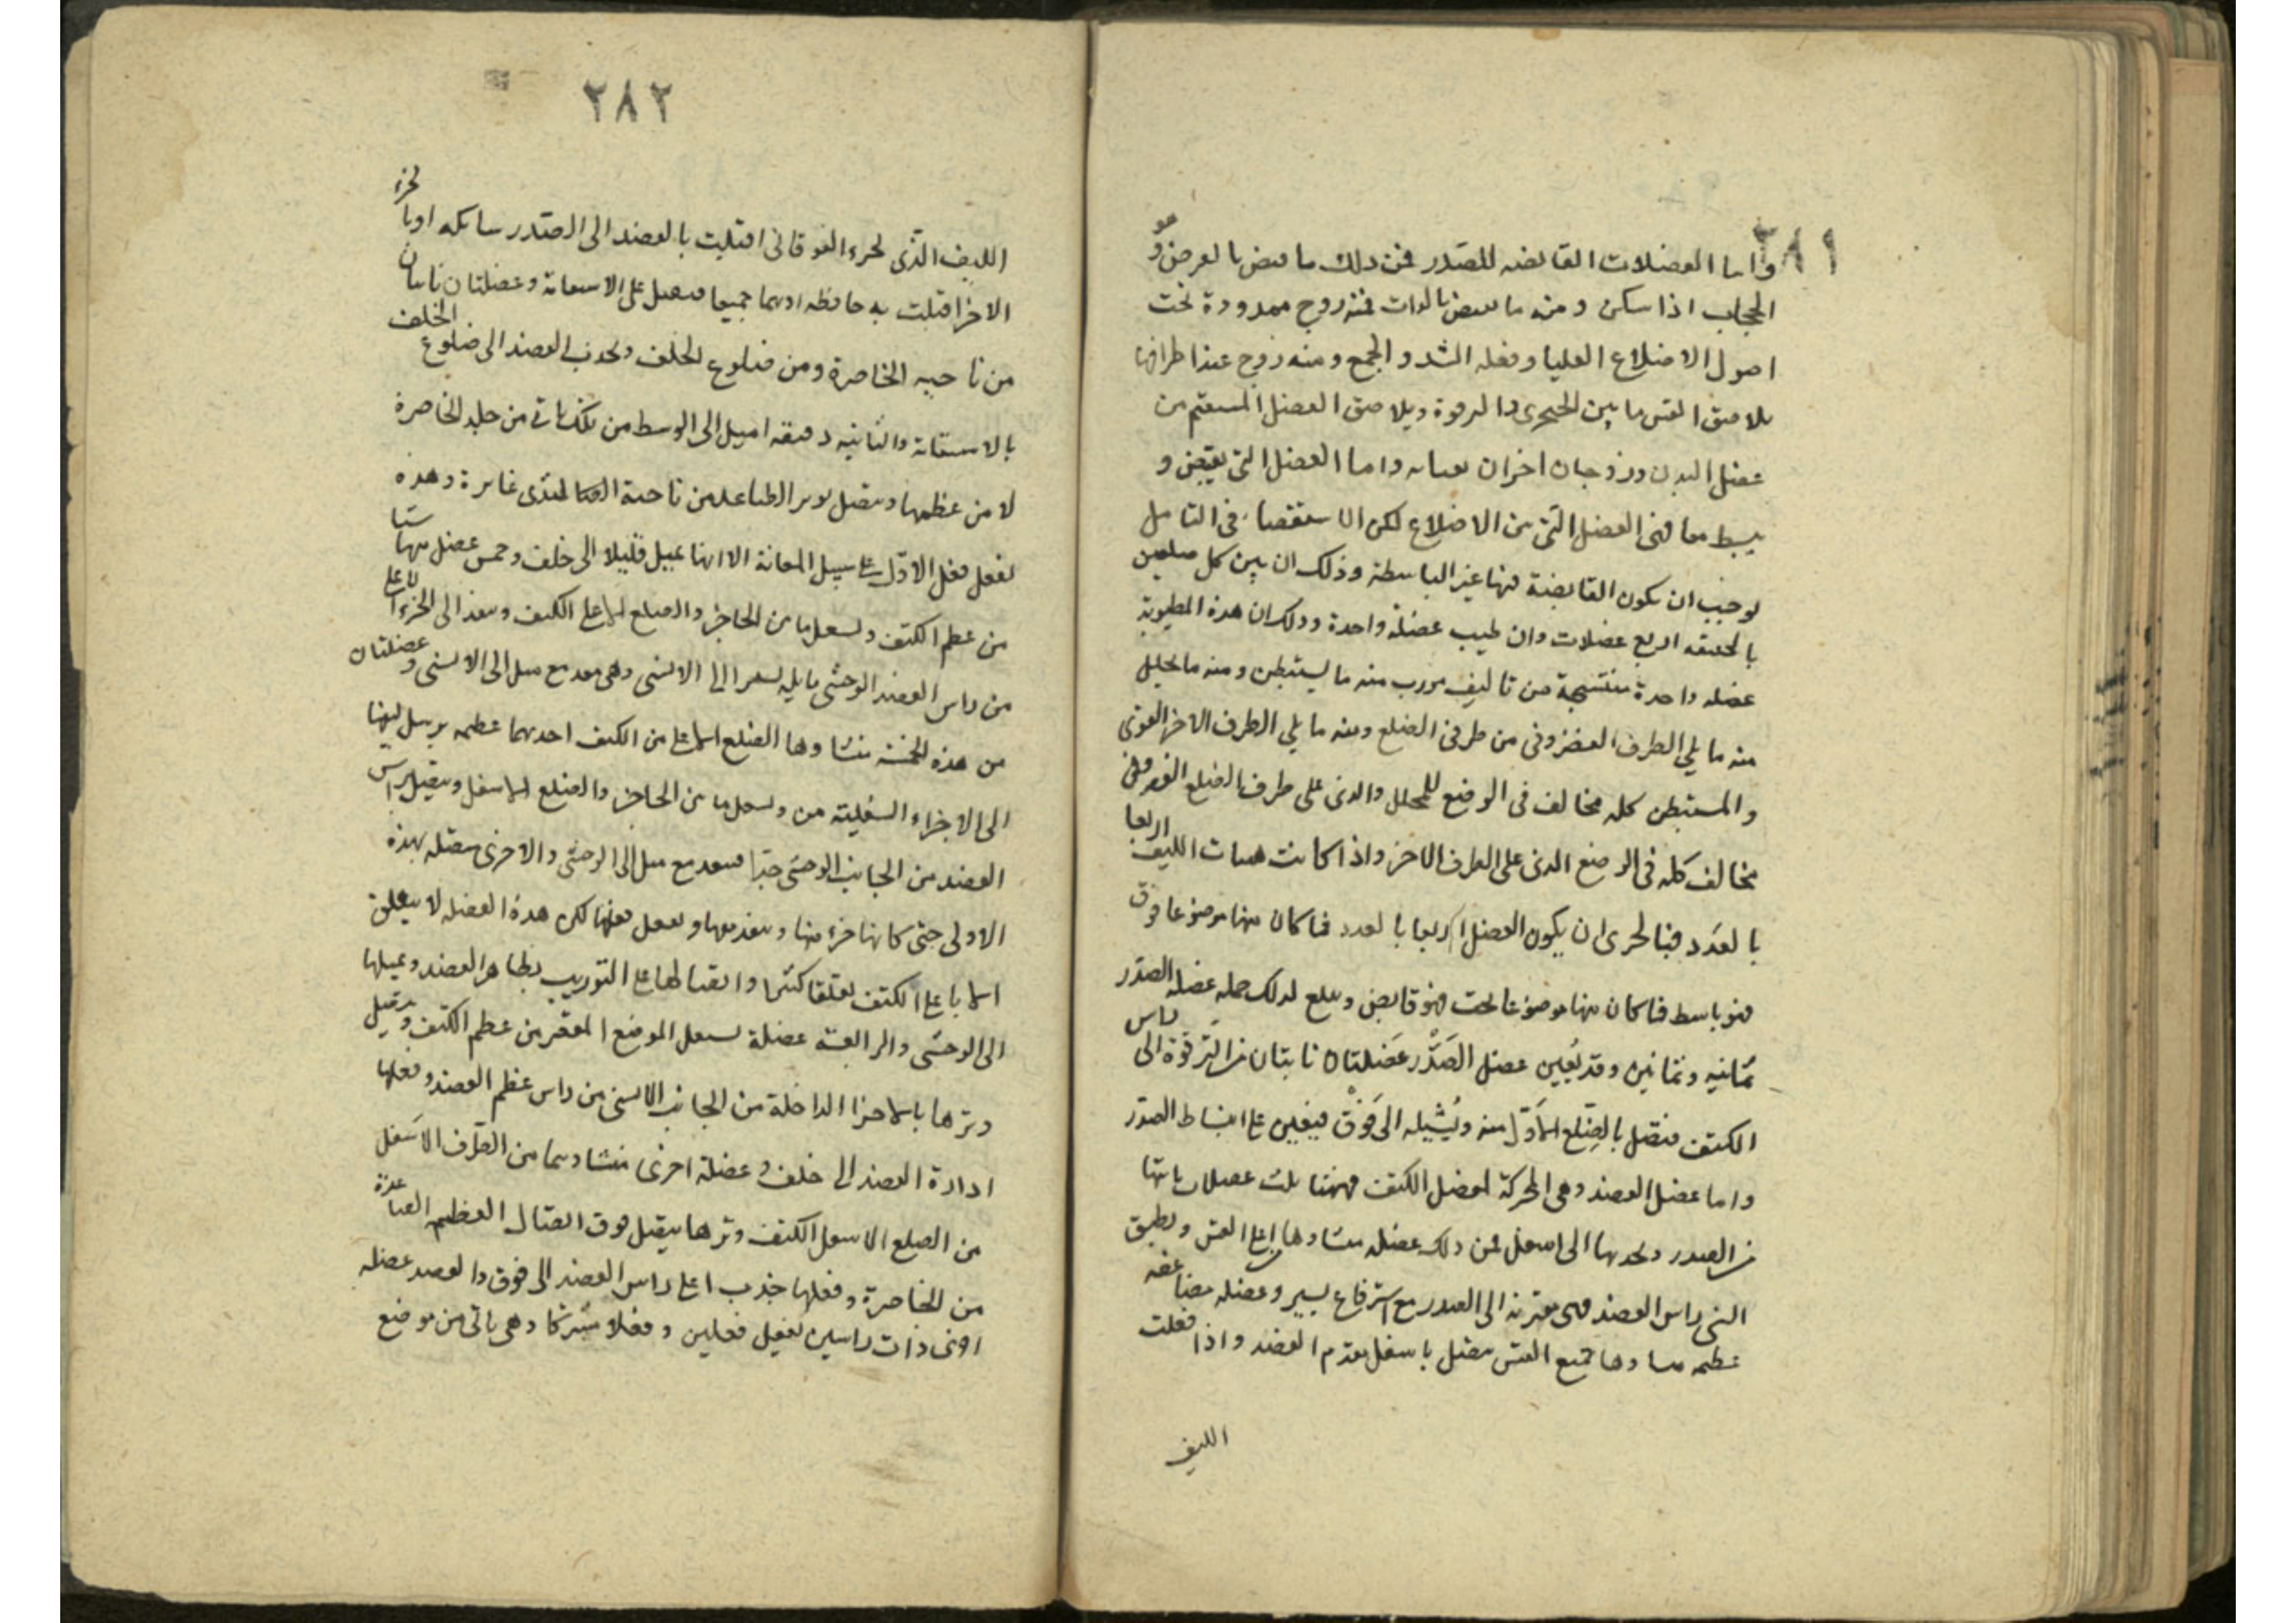 ٢٨١
واما العضلات القابضه للصدر فمن ذلك ما يقبض بالعرض وهو
الحجاب اذا سكن ومنه ما يقبض بالذات فمنه زوج ممدودة تحت
اصول الاضلاع العليا وفعله الشد والجمع ومنه زوج عند اطرافها
يلاصق القس ما بين الخنجرى والترقوة ويلاصق العضل المستقيم من
عضل البدن وزوجان اخران يعينانه واما العضل التى تقبض و
يبسط معا فهى العضل التى بين الاضلاع لكن الاستقصاء فى التامل
يوجب ان يكون القابضة منها غير الباسطة وذلك ان بين كل ضلعين
بالحقيقه اربع عضلات وان ظنت عضلة واحدة وذلك ان هذه المظنونة
عضله واحدة منتسجة من تاليف مورب منه ما يستبطن ومنه ما يجلل
منه ما يلي الطرف الغضروفى من طرفى الضلع ومنه ما يلي الطرف الاخر القوى
والمستبطن كله مخالف فى الوضع للمجلل والذى على طرف الضلع الغضروفى
مخالف كله فى الوضع الذى على الطرف الاخر واذا كانت هيات الليف اربعا
بالعدد فبالحرى ان يكون العضل اربعا بالعدد فما كان منها موضوعا فوق
فهو باسط فما كان منها موضوعا تحت فهو قابض ويبلغ لذلك جمله عضله الصدر
ثمانيه وثمانين وقد يُعين عضل الصَّدْر عَضلتان نابتان من التَرقُوة الى راس
الكتف فتصل بالضِلع الاَوّل منه وتُشيله الى فَوْق فيعين على انبساط الصدر
واما عضل العضد وهى المحركة لمفصل الكتف فمنها ثلث عضلات ياتيها
من الصدر وتجذبها الى اسفل فمن ذلك عضله منشاوها من اعلى القس وتطيق
التى راس العضد فهى مقربة الى الصدر مع استرفاع يسير وعضله مضاعفه
عظيمه منشاوها جميع القس متصل باسفل مقدم العضد واذا فعلت
الليف
٢٨٢
الليف الذى لجزء الفوقانى اقبلت بالعضد الى الصدر شائله او بالجزء
الاخر اقبلت به خافظه او بهما جميعا فيقبل على الاستقامة وعضلتان ناتيان
من ناحيه الخاصرة ومن ضلوع الخلف وتجذب العضد الى ضلوع الخلف
بالاستقامة والثانيه دقيقه اميل الى الوسط من تلك ياتى من جلد الخاصرة
لا من عظمها ويتصل بوتر الصاعدة من ناحية الثدى غايرة وهذه
تفعل فعل الاوّل على سبيل المعانة الا انها تميل قليلا الى خلف وخمس عضل منشاها
من عظم الكتف وتشغل ما بين الحاجز والضلع الاعلى الكتف وينفذ الى الجزء الاعلى
من راس العضد الوحشى مايله يسيرا الى الانسى وهى تبعد مع ميل الى الانسى وعضلتان
من هذه الخمسة منشاوها الضلع الاعلى من الكتف احدهما عظيمه يرسل ليفها
الى الاجزاء السفلية من وتشغل ما بين الحاجز والضلع الاسفل ويتصل براس
العضد من الجانب الوحشى جدّا فتبعد مع ميل الى الوحشى والاخرى متصله بهذه
الاولى حتى كانها جزء منها وينفذ معها وتفعل فعلها لكن هذه العضله لا يتعلق
الاباعلى الكتف تعلقا كثيرا واتصالها على التوريب بظاهر العضد وتميلها
الى الوحشى والرابعة عضلة تشغل الموضع المقعر من عظم الكتف ويتصل
وترها بالاجزا الداخلة من الجانب الانسى من راس عظم العضد وفعلها
ادارة العضد الى خلف وعضلة اخرى منشاوها من الطرف الاسفل
من الضلع الاسفل الكتف وترها يتصل فوق اتصال العظيم الصاعدة
من الخاصرة وفعلها جذب اعلى راس العضد الى فوق والعضد عضله
اخرى ذات راسين تفعل فعلين وفعلا مشتركا وهى ياتى من موضع